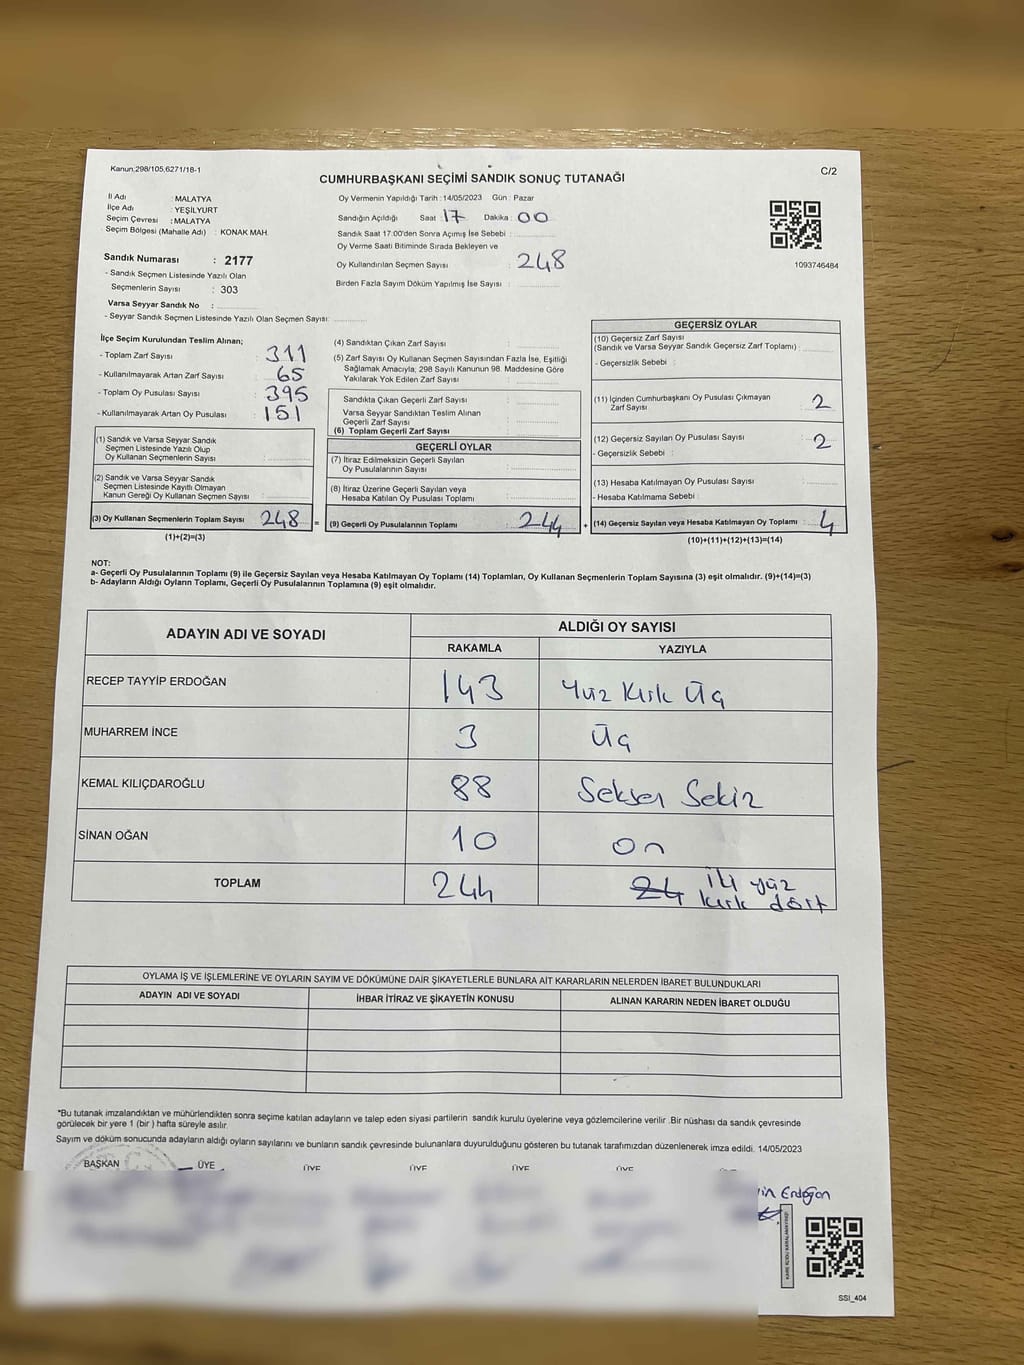 Kanun;298/105,6271/18-1
C/2
CUMHURBAŞKANI SEÇİMİ SANDIK SONUÇ TUTANAĞI
İl Adı : MALATYA
İlçe Adı : YEŞİLYURT
Seçim Çevresi : MALATYA
Seçim Bölgesi (Mahalle Adı) : KONAK MAH.
Sandık Numarası : 2177
- Sandık Seçmen Listesinde Yazılı Olan
Seçmenlerin Sayısı : 303
Varsa Seyyar Sandık No :
- Seyyar Sandık Seçmen Listesinde Yazılı Olan Seçmen Sayısı:
Oy Vermenin Yapıldığı Tarih : 14/05/2023 Gün : Pazar
Sandığın Açıldığı Saat : 17 Dakika : 00
Sandık Saat 17:00'den Sonra Açımış İse Sebebi :
Oy Verme Saati Bitiminde Sırada Bekleyen ve
Oy Kullandırılan Seçmen Sayısı : 248
Birden Fazla Sayım Döküm Yapılmış İse Sayısı :
1093746484
İlçe Seçim Kurulundan Teslim Alınan;
- Toplam Zarf Sayısı : 311
- Kullanılmayarak Artan Zarf Sayısı : 65
- Toplam Oy Pusulası Sayısı : 395
- Kullanılmayarak Artan Oy Pusulası : 151
(1) Sandık ve Varsa Seyyar Sandık
Seçmen Listesinde Yazılı Olup
Oy Kullanan Seçmenlerin Sayısı :
(2) Sandık ve Varsa Seyyar Sandık
Seçmen Listesinde Kayıtlı Olmayan
Kanun Gereği Oy Kullanan Seçmen Sayısı :
(3) Oy Kullanan Seçmenlerin Toplam Sayısı 248 =
(1)+(2)=(3)
(4) Sandıktan Çıkan Zarf Sayısı :
(5) Zarf Sayısı Oy Kullanan Seçmen Sayısından Fazla İse, Eşitliği
Sağlamak Amacıyla; 298 Sayılı Kanunun 98. Maddesine Göre
Yakılarak Yok Edilen Zarf Sayısı :
Sandıkta Çıkan Geçerli Zarf Sayısı :
Varsa Seyyar Sandıktan Teslim Alınan
Geçerli Zarf Sayısı :
(6) Toplam Geçerli Zarf Sayısı :
GEÇERLİ OYLAR
(7) İtiraz Edilmeksizin Geçerli Sayılan
Oy Pusulalarının Sayısı :
(8) İtiraz Üzerine Geçerli Sayılan veya
Hesaba Katılan Oy Pusulası Toplamı :
(9) Geçerli Oy Pusulalarının Toplamı : 244 +
GEÇERSİZ OYLAR
(10) Geçersiz Zarf Sayısı
(Sandık ve Varsa Seyyar Sandık Geçersiz Zarf Toplamı) :
- Geçersizlik Sebebi :
(11) İçinden Cumhurbaşkanı Oy Pusulası Çıkmayan
Zarf Sayısı : 2
(12) Geçersiz Sayılan Oy Pusulası Sayısı : 2
- Geçersizlik Sebebi :
(13) Hesaba Katılmayan Oy Pusulası Sayısı :
- Hesaba Katılmama Sebebi :
(14) Geçersiz Sayılan veya Hesaba Katılmayan Oy Toplamı : 4
(10)+(11)+(12)+(13)=(14)
NOT:
a- Geçerli Oy Pusulalarının Toplamı (9) ile Geçersiz Sayılan veya Hesaba Katılmayan Oy Toplamı (14) Toplamları, Oy Kullanan Seçmenlerin Toplam Sayısına (3) eşit olmalıdır. (9)+(14)=(3)
b- Adayların Aldığı Oyların Toplamı, Geçerli Oy Pusulalarının Toplamına (9) eşit olmalıdır.
ADAYIN ADI VE SOYADI ALDIĞI OY SAYISI
RAKAMLA YAZIYLA
RECEP TAYYİP ERDOĞAN 143 Yüz Kırk Üç
MUHARREM İNCE 3 Üç
KEMAL KILIÇDAROĞLU 88 Seksen Sekiz
SİNAN OĞAN 10 On
TOPLAM 244 24 iki yüz
kırk dört
OYLAMA İŞ VE İŞLEMLERİNE VE OYLARIN SAYIM VE DÖKÜMÜNE DAİR ŞİKAYETLERLE BUNLARA AİT KARARLARIN NELERDEN İBARET BULUNDUKLARI
ADAYIN ADI VE SOYADI İHBAR İTİRAZ VE ŞİKAYETİN KONUSU ALINAN KARARIN NEDEN İBARET OLDUĞU
*Bu tutanak imzalandıktan ve mühürlendikten sonra seçime katılan adayların ve talep eden siyasi partilerin sandık kurulu üyelerine veya gözlemcilerine verilir. Bir nüshası da sandık çevresinde
görülecek bir yere 1 (bir ) hafta süreyle asılır.
Sayım ve döküm sonucunda adayların aldığı oyların sayılarını ve bunların sandık çevresinde bulunanlara duyurulduğunu gösteren bu tutanak tarafımızdan düzenlenerek imza edildi. 14/05/2023
BAŞKAN ÜYE ÜYE ÜYE ÜYE ÜYE
Erdoğan
SSI_404